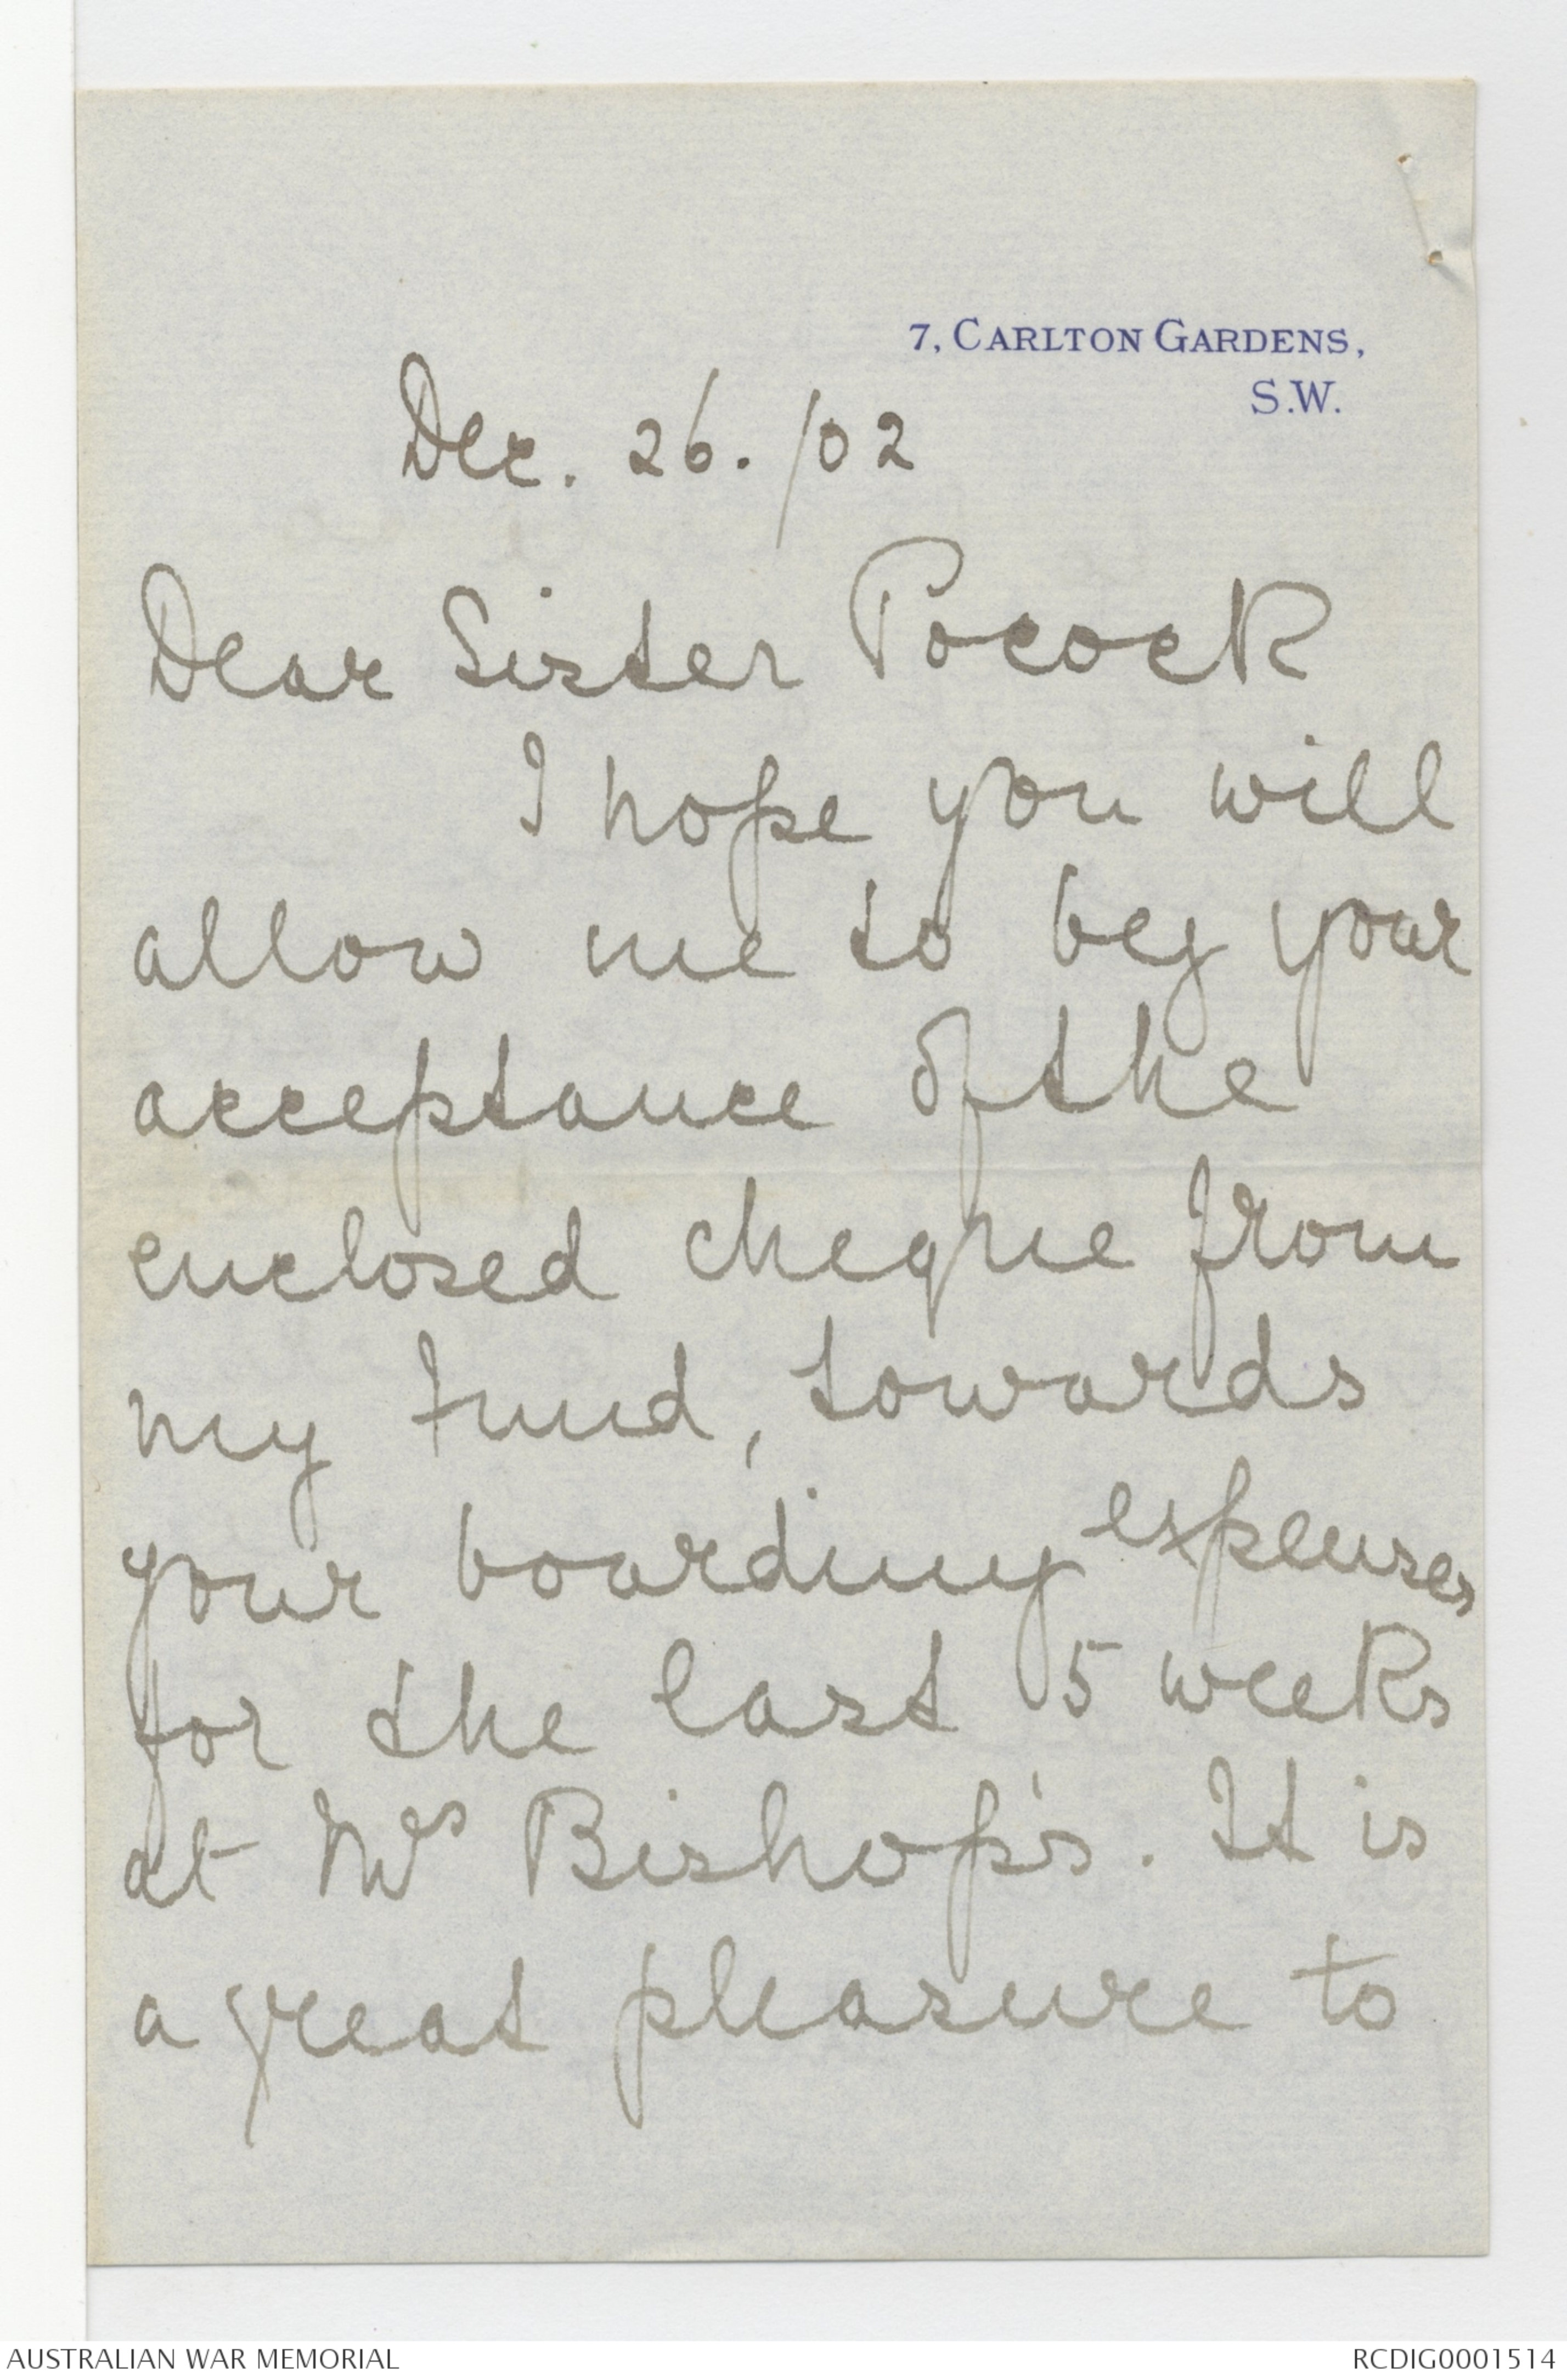 7, CARLTON GARDENS,
S.W.
Dec. 26. /02
Dear Sister Pocock
I hope you will
allow me to beg your
acceptance of the
enclosed cheque from
my fund, towards
your boarding expenses
for the last 5 weeks
at Mrs Bishop's. It is
a great pleasure to
AUSTRALIAN WAR MEMORIAL
RCDIG0001514